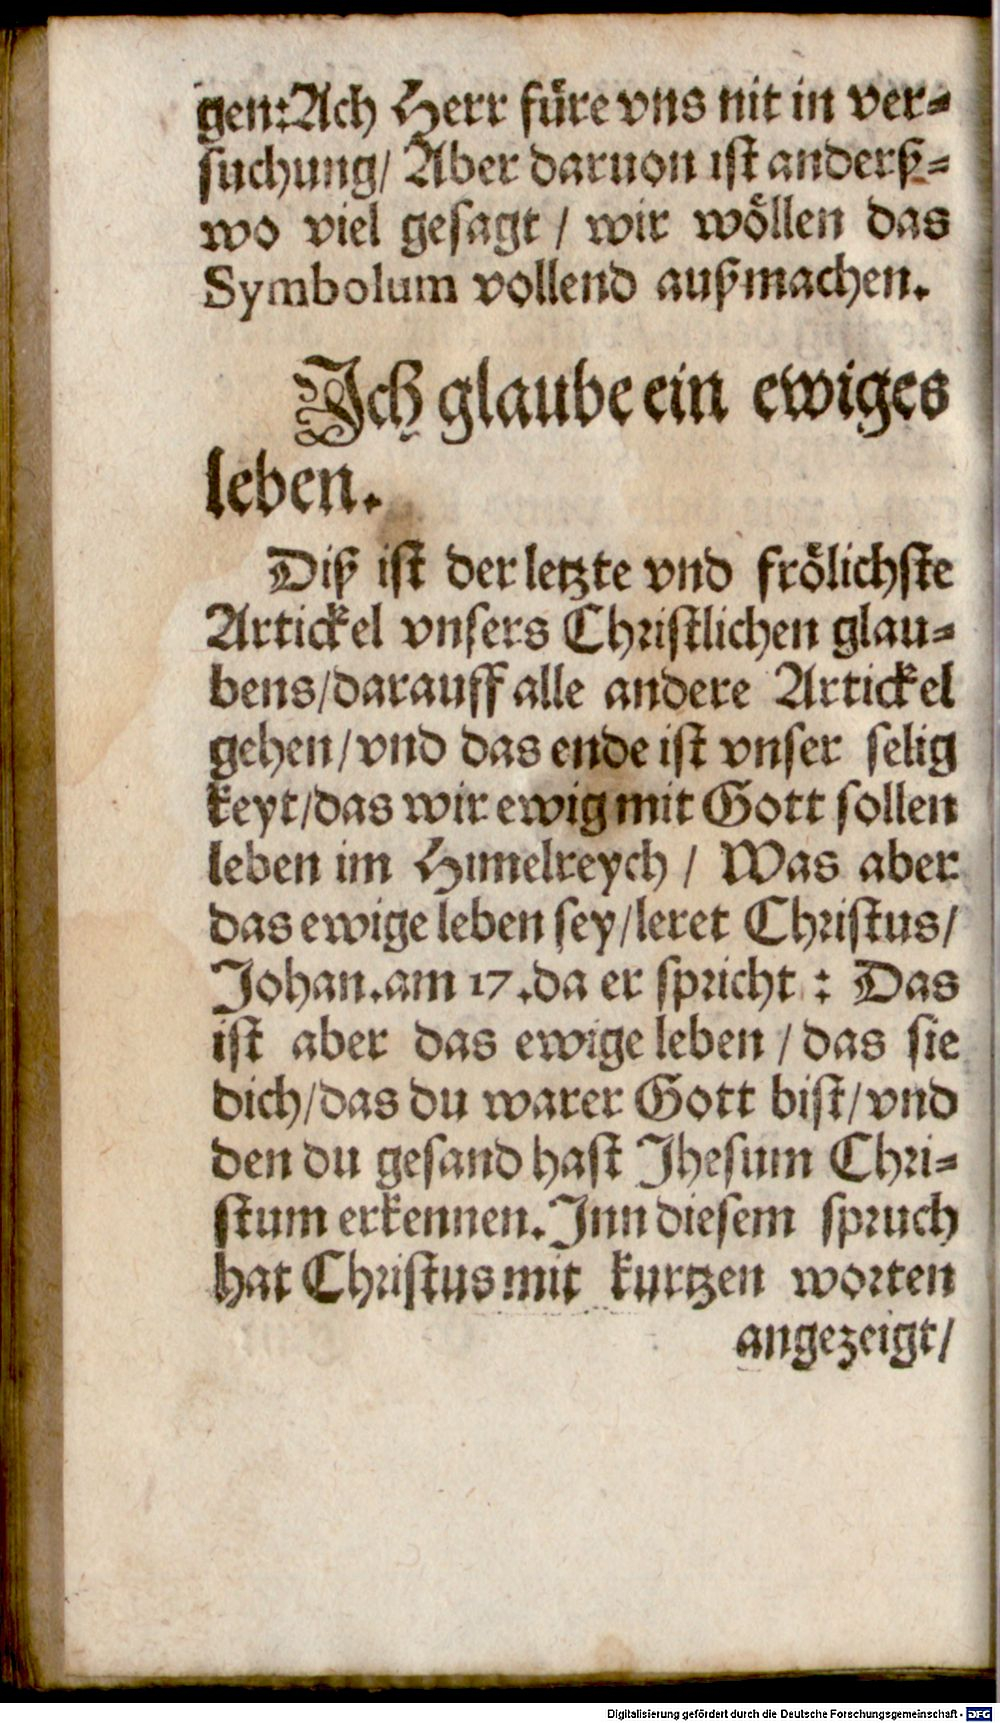 gen:Ach Herr füre vns nit in ver-
suchung/ Aber daruon ist anderß-
wo viel gesagt / wir wöllen das
Symbolum vollend außmachen.
Ich glaube ein ewiges
leben.
Diß ist der letzte vnd frölichste
Artickel vnsers Christlichen glau-
bens/darauff alle andere Artickel
gehen/vnd das ende ist vnser selig
keyt/das wir ewig mit Gott sollen
leben im Himelreych / Was aber
das ewige leben sey/leret Christus/
Johan.am 17.da er spricht : Das
ist aber das ewige leben / das sie
dich/das du warer Gott bist/vnd
den du gesand hast Jhesum Chri-
stum erkennen. Inn diesem spruch
hat Christus mit kurtzen worten
angezeigt/
Digitalisierung gefördert durch die Deutsche Forschungsgemeinschaft - DFG